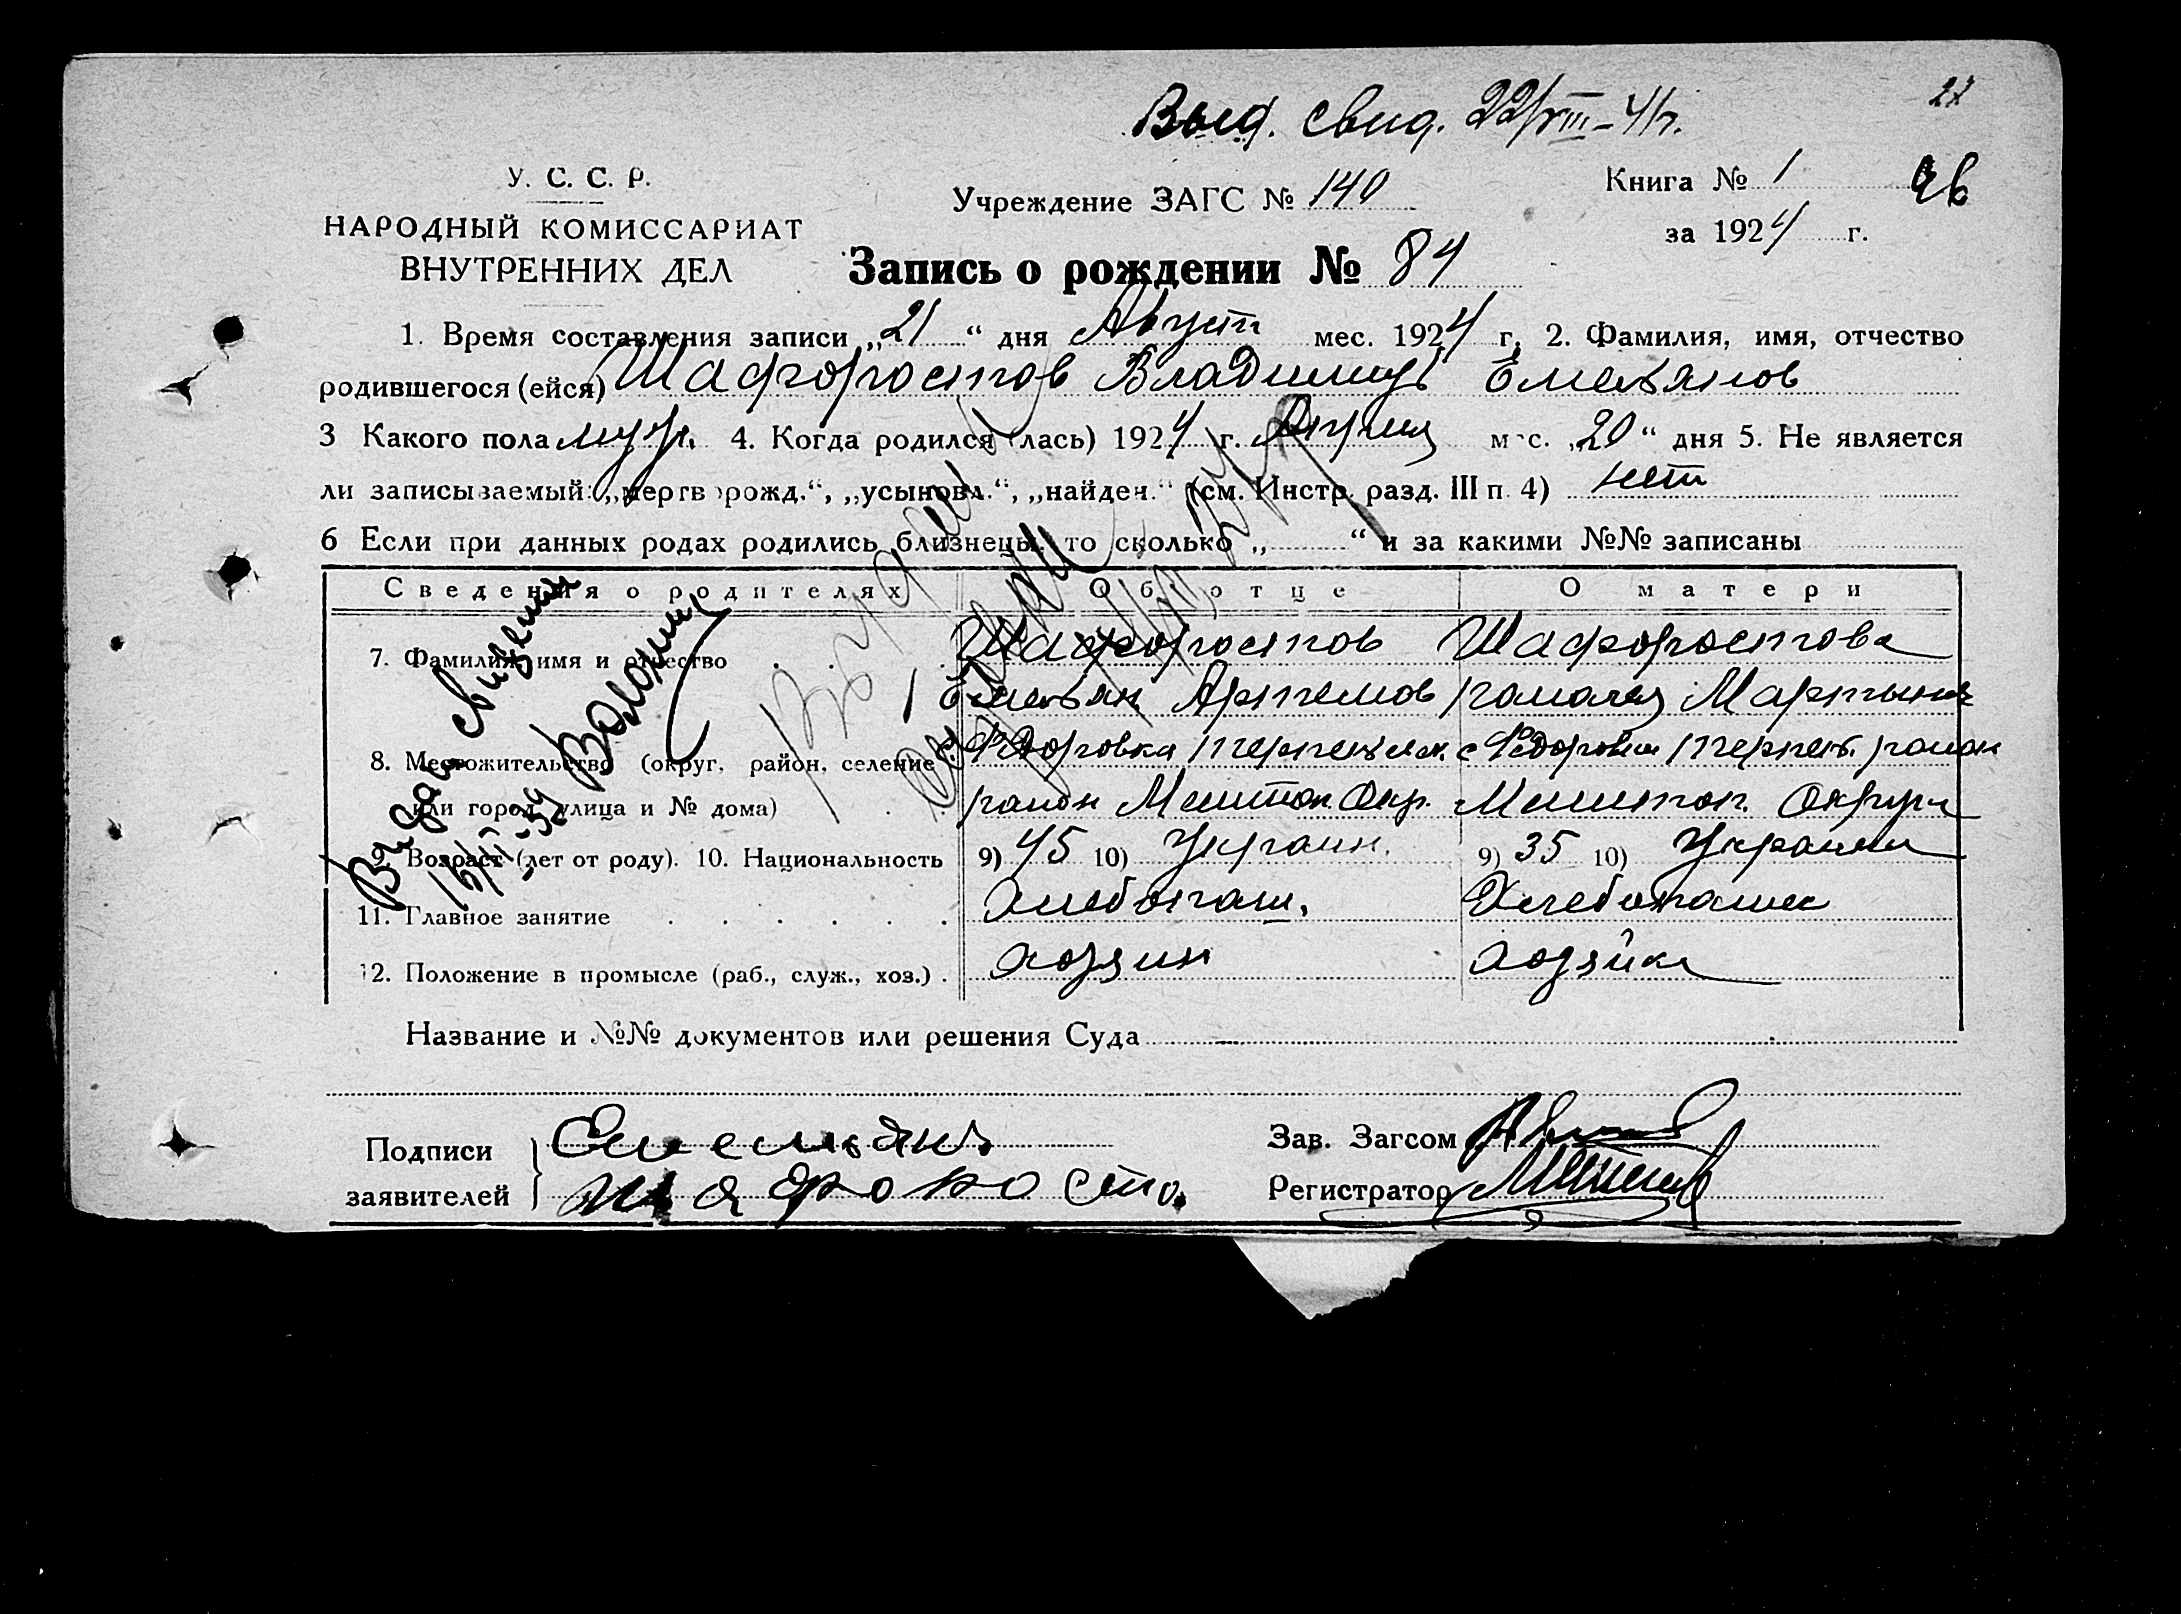 27
Выд. свид. 22/VIII-41г.
У. С. С. Р.
НАРОДНЫЙ КОМИССАРИАТ
ВНУТРЕННИХ ДЕЛ
Учреждение ЗАГС № 140
Книга № 1
за 1924 г.
Запись о рождении № 84
1. Время составления записи „21“ дня Август мес. 1924 г. 2. Фамилия, имя, отчество
родившегося (ейся) Шафоростов Владимир Емельянов
3 Какого пола муж. 4. Когда родился (лась) 1924 г. мес. „20“ дня 5. Не является
ли записываемый: „мертворожд.“, „усыновл.“, „найден.“ (см. Инстр. разд. III п. 4) нет
6 Если при данных родах родились близнецы, то сколько „ “ и за какими №№ записаны
Сведения о родителях Об отце О матери
7. Фамилия, имя и отчество Шафоростов Шафоростова
Емельян Артемов Мартынов
8. Местожительство (округ, район, селение Федоровка Терпен. с Федоровка Терпен. район
или город, улица и № дома) район Мелитоп. Окр. Мелитоп. Округа
9. Возраст (лет от роду). 10. Национальность 9) 45 10) Украин. 9) 35 10) Украинк
11. Главное занятие Хлебопаш. Хлебопашес
12. Положение в промысле (раб., служ., хоз.) хозяин хозяйка
Название и №№ документов или решения Суда
Подписи Емельян
заявителей Шафоросто
Зав. Загсом
Регистратор